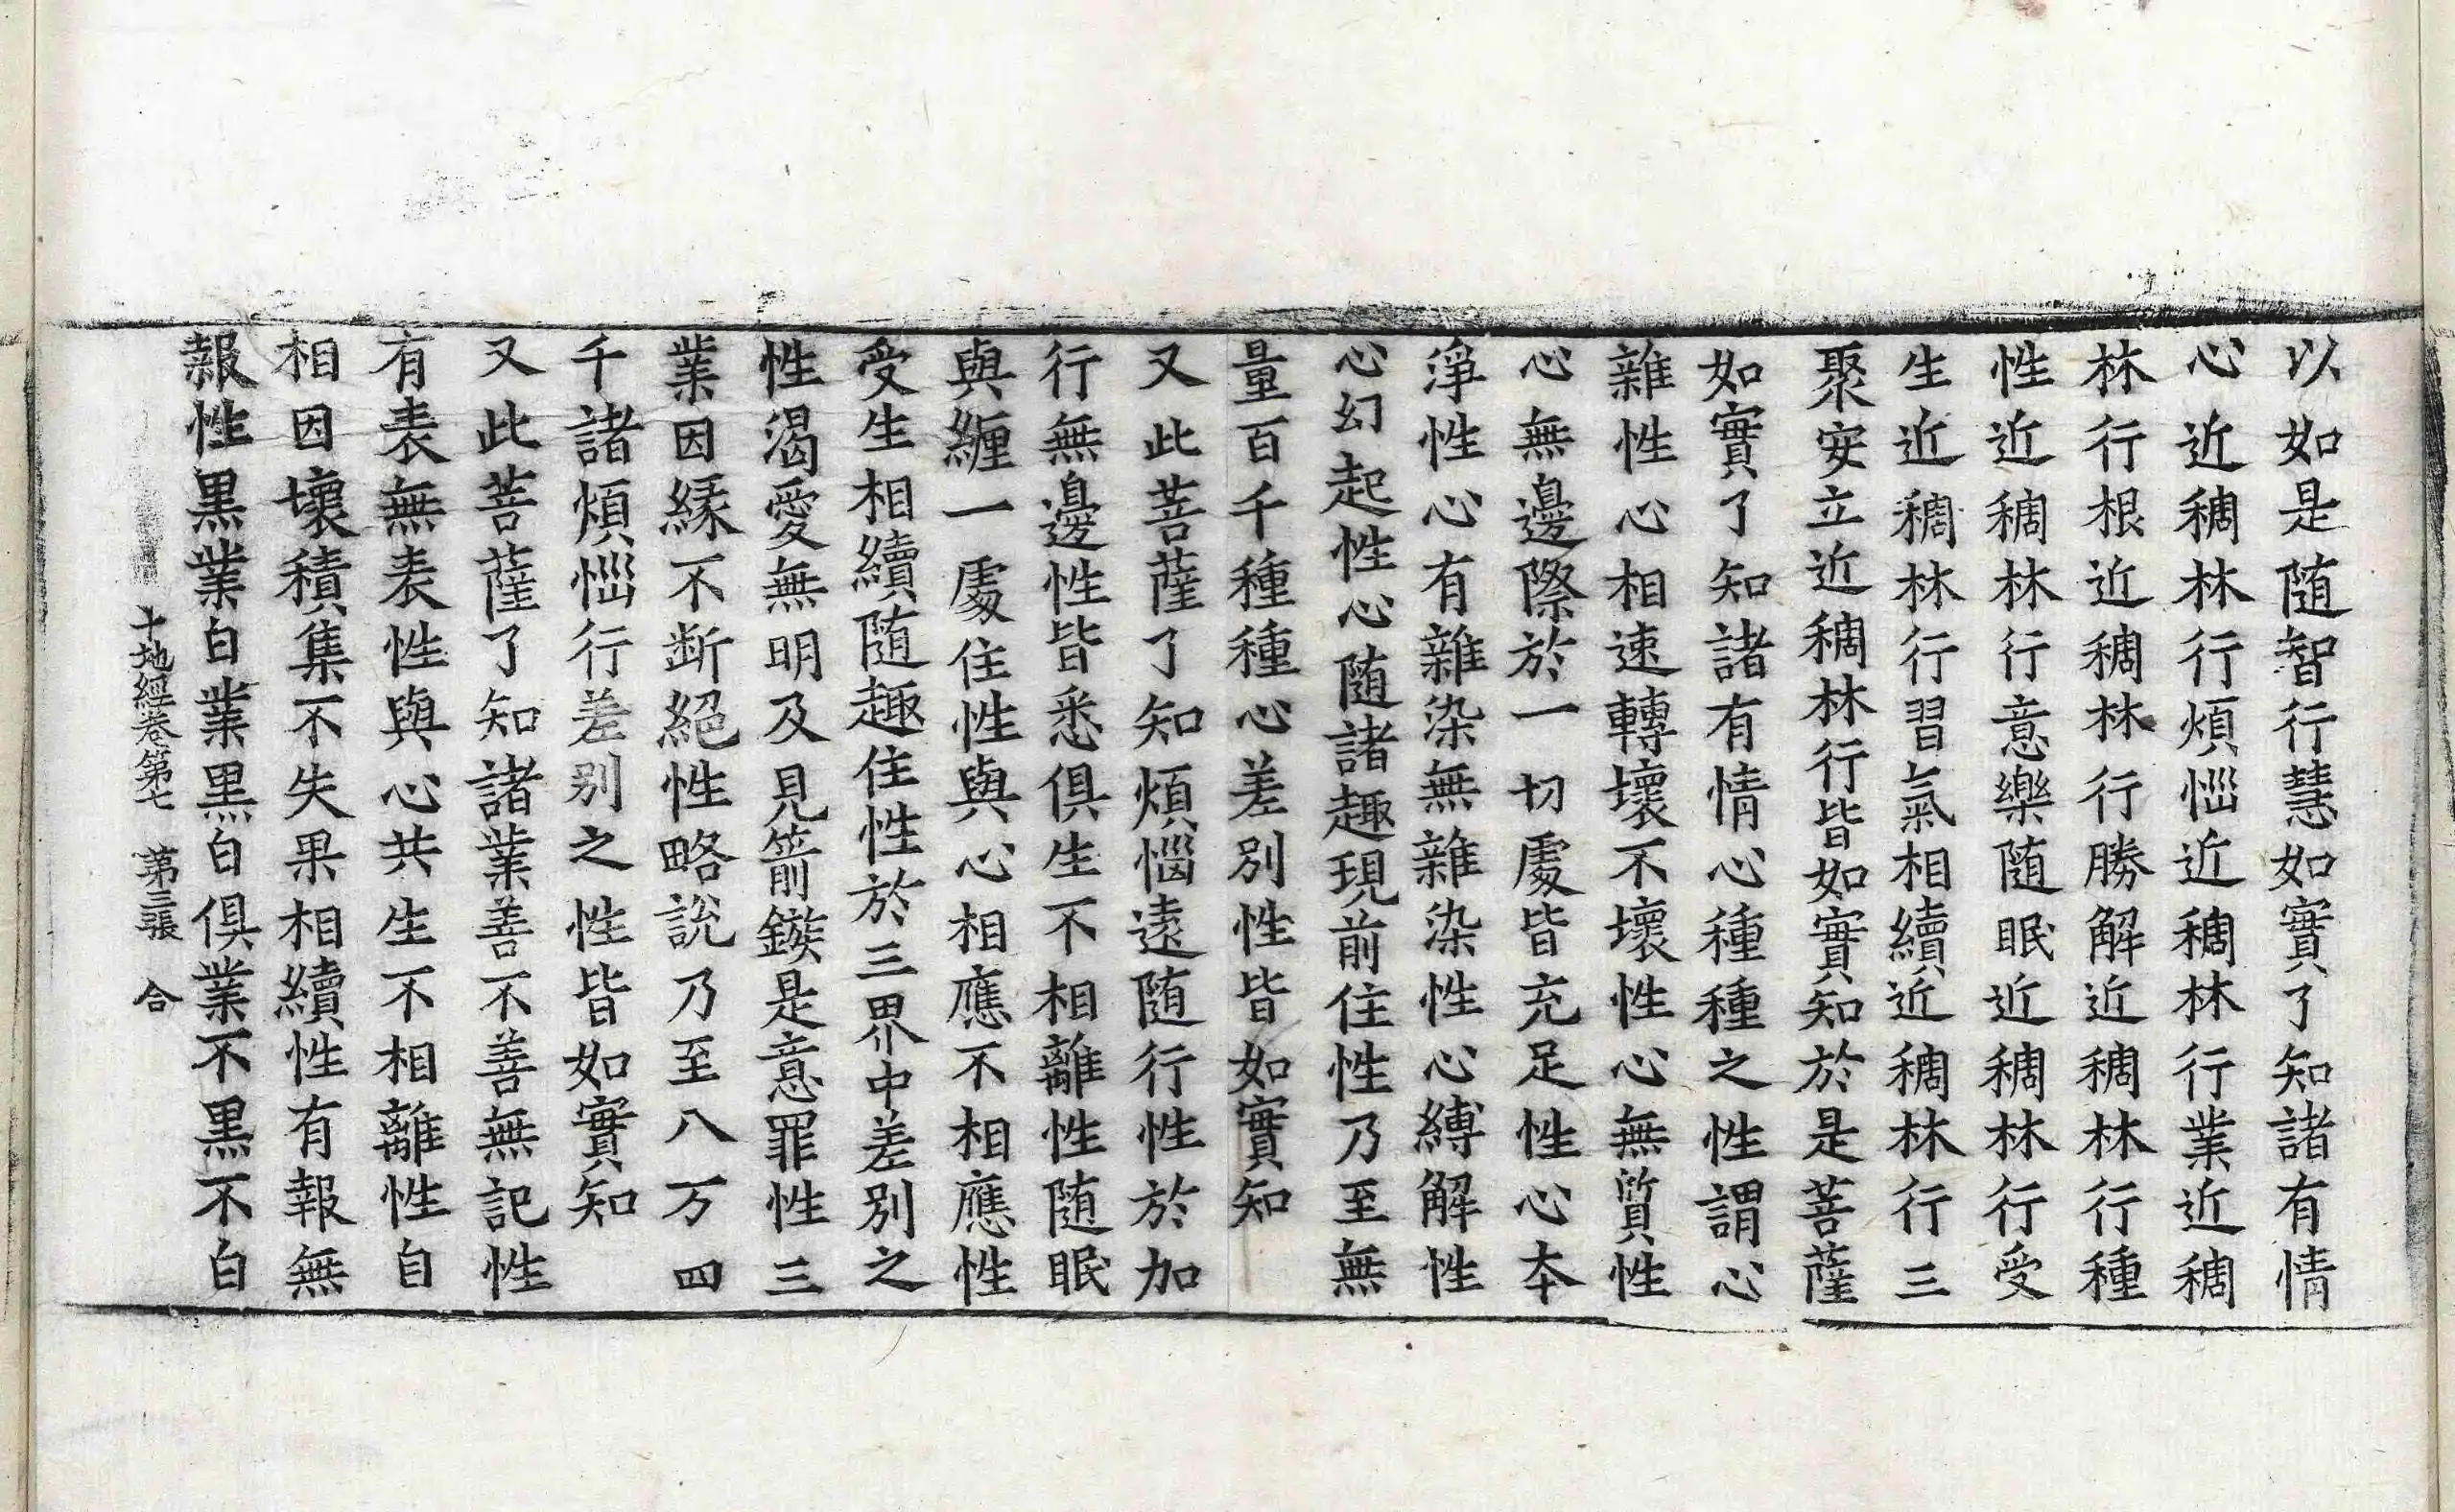 以如是随智行慧如實了知諸有情
心近稠林行煩惱近稠林行業近稠
林行根近稠林行勝解近稠林行種
性近稠林行意樂随眠近稠林行受
生近稠林行習氣相續近稠林行三
聚安立近稠林行皆如實知於是菩薩
如實了知諸有情心種種之性謂心
雜性心相速轉壞不壞性心無質性
心無邊際於一切處皆充足性心本
淨性心有雜染無雜染性心縛解性
心幻起性心随諸趣現前住性乃至無
量百千種種心差別性皆如實知
又此菩薩了知煩惱遠随行性於加
行無邊性皆悉俱生不相離性随眠
與纏一處住性與心相應不相應性
受生相續随趣住性於三界中差別之
性渴愛無明及見箭鏃是意罪性三
業因緣不断絕性略說乃至八万四
千諸煩惱行差別之性皆如實知
又此菩薩了知諸業善不善無記性
有表無表性與心共生不相離性自
相因壞積集不失果相續性有報無
報性黒業白業黒白俱業不黒不白
十地經卷第七 第三張 合